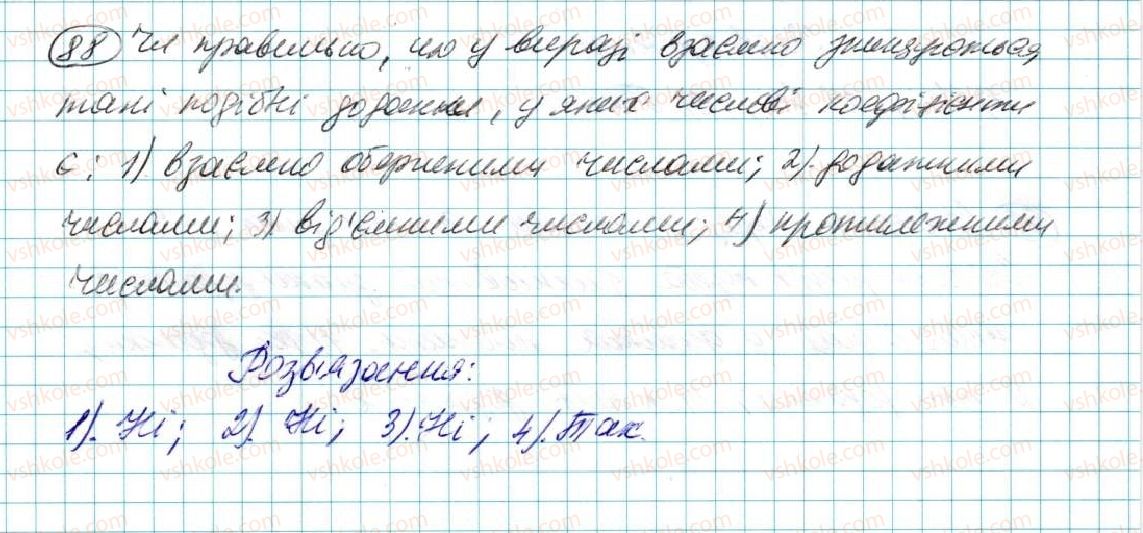 88 Чи правильно, що у виразі взаємно знищуються
такі подібні доданки, у яких числові коефіцієнти
є: 1) взаємно оберненими числами; 2). додатними
числами; 3) від'ємними числами; 4) протилежними
числами.
Розв'язання:
1). Ні; 2). Ні; 3). Ні; 4). Так.
vshkole.com